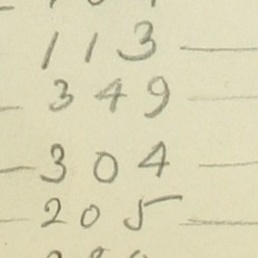 113
349
304
205